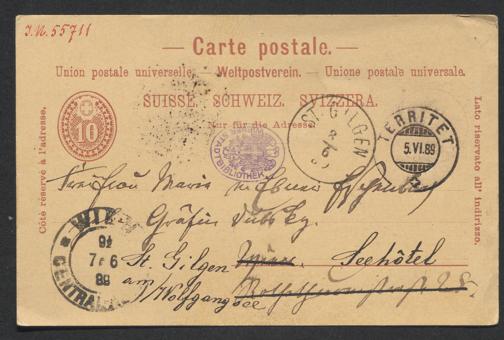 I.N. 55711
— Carte postale. —
Union postale universelle. — Weltpostverein. — Unione postale universale.
SUISSE. SCHWEIZ. SVIZZERA.
Nur für die Adresse
Côté réservé à l'adresse.
Lato riservato all' indirizzo.
10
STADTBIBLIOTHEK
ST. GILGEN
TERRITET
5.VI.89
WIEN
7 6
89
Marie
Ebner Eschenbach
Gräfin Dubsky
St. Gilgen Wien. Seehôtel
am Wolfgangsee